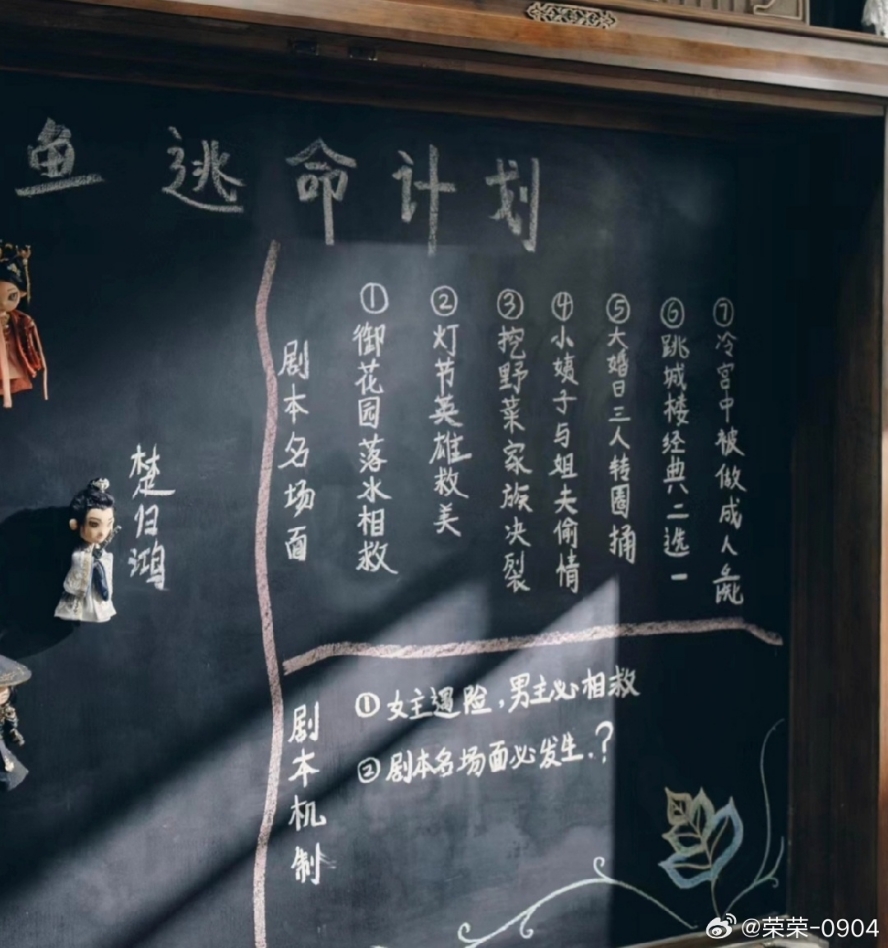 鱼逃命计划
剧本名场面
①御花园落水相救
②灯节英雄救美
③挖野菜家族决裂
④小姨子与姐夫偷情
⑤大婚日三人转圈捅
⑥跳城楼经典二选一
⑦冷宫中被做成人彘
楚归鸿
剧本机制
①女主遇险，男主必相救
②剧本名场面必发生.？
@荣荣-0904